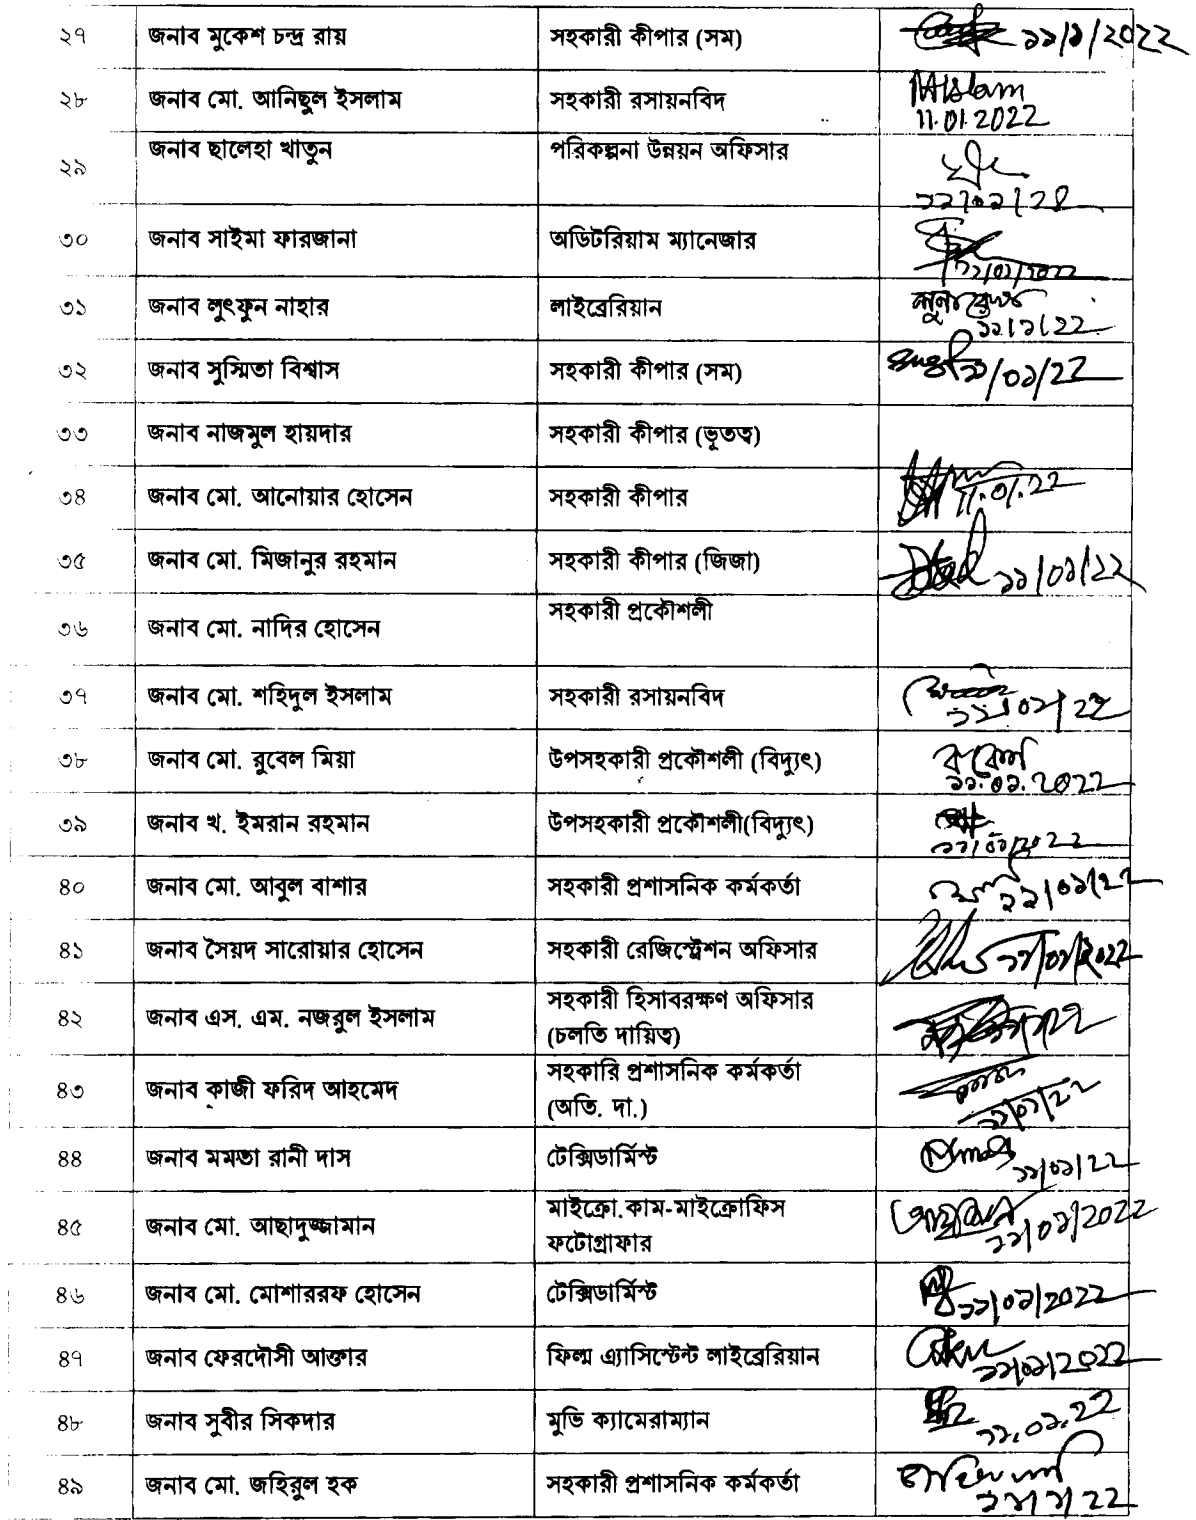 ২৭ জনাব মুকেশ চন্দ্র রায় সহকারী কীপার (সম) ১১/১/2022
২৮ জনাব মো. আনিছুল ইসলাম সহকারী রসায়নবিদ
11.01.2022
২৯ জনাব ছালেহা খাতুন পরিকল্পনা উন্নয়ন অফিসার
৩০ জনাব সাইমা ফারজানা অডিটরিয়াম ম্যানেজার
৩১ জনাব লুৎফুন নাহার লাইব্রেরিয়ান
১১/১/22
৩২ জনাব সুস্মিতা বিশ্বাস সহকারী কীপার (সম) ১১/০১/22
৩৩ জনাব নাজমুল হায়দার সহকারী কীপার (ভূতত্ব)
৩৪ জনাব মো. আনোয়ার হোসেন সহকারী কীপার 11.01.22
৩৫ জনাব মো. মিজানুর রহমান সহকারী কীপার (জিজা) ১১/০১/22
৩৬ জনাব মো. নাদির হোসেন সহকারী প্রকৌশলী
৩৭ জনাব মো. শহিদুল ইসলাম সহকারী রসায়নবিদ
১১/০১/22
৩৮ জনাব মো. রুবেল মিয়া উপসহকারী প্রকৌশলী (বিদ্যুৎ) রুবেল
১১.০১.2022
৩৯ জনাব খ. ইমরান রহমান উপসহকারী প্রকৌশলী(বিদ্যুৎ)
১১/০১/2022
৪০ জনাব মো. আবুল বাশার সহকারী প্রশাসনিক কর্মকর্তা ১১/০১/22
৪১ জনাব সৈয়দ সারোয়ার হোসেন সহকারী রেজিস্ট্রেশন অফিসার ১১/০১/2022
৪২ জনাব এস. এম. নজরুল ইসলাম সহকারী হিসাবরক্ষণ অফিসার
(চলতি দায়িত্ব)
৪৩ জনাব কাজী ফরিদ আহমেদ সহকারি প্রশাসনিক কর্মকর্তা
(অতি. দা.) ১১/০১/22
৪৪ জনাব মমতা রানী দাস টেক্সিডার্মিস্ট
১১/০১/22
৪৫ জনাব মো. আছাদুজ্জামান মাইক্রো.কাম-মাইক্রোফিস
ফটোগ্রাফার ১১/০১/2022
৪৬ জনাব মো. মোশাররফ হোসেন টেক্সিডার্মিস্ট ১১/০১/2022
৪৭ জনাব ফেরদৌসী আক্তার ফিল্ম এ্যাসিস্টেন্ট লাইব্রেরিয়ান
১১/০১/2022
৪৮ জনাব সুবীর সিকদার মুভি ক্যামেরাম্যান ১১.০১.22
৪৯ জনাব মো. জহিরুল হক সহকারী প্রশাসনিক কর্মকর্তা
১১/১/22